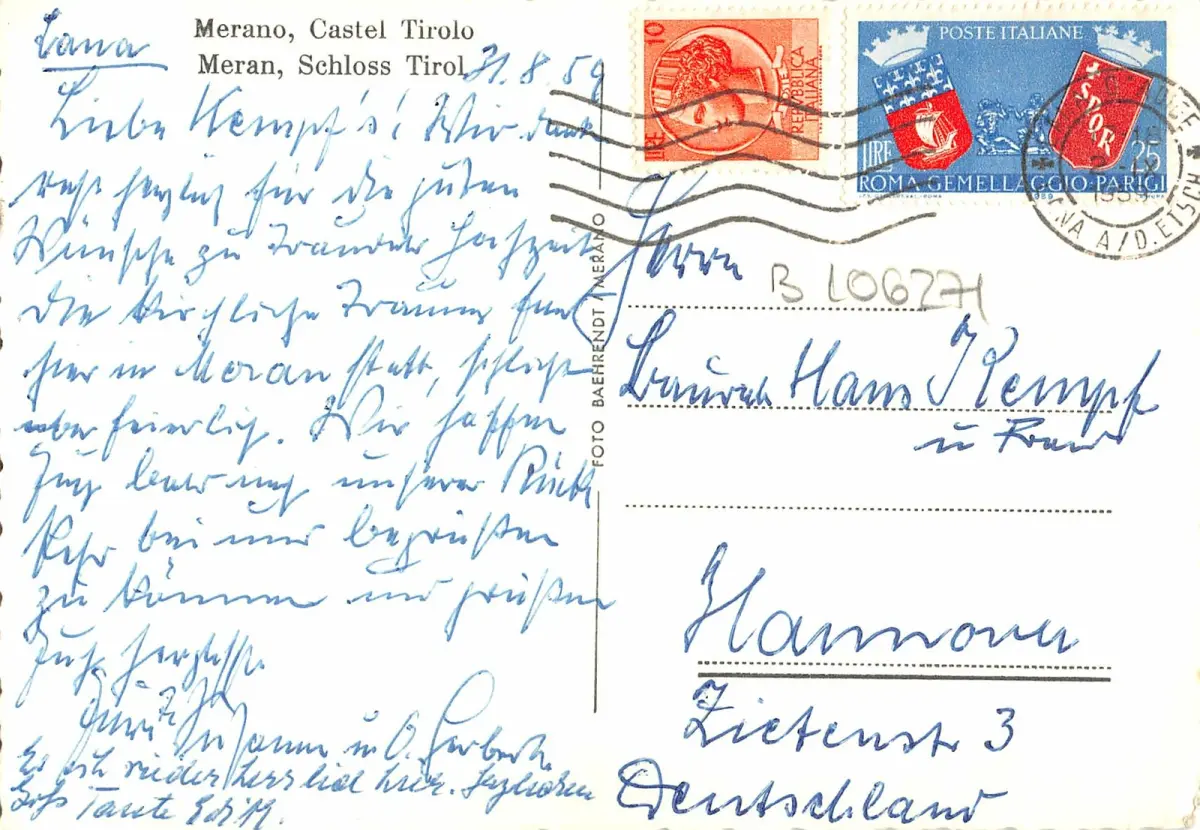 Merano, Castel Tirolo
Meran, Schloss Tirol
Lana 31.8.59
Liebe Kempf's! Wir danken
recht herzlich für die guten
Wünsche zu Hochzeit
die kirchliche Trauung fand
hier in Meran statt, schlicht
aber feierlich. Wir hoffen
Euch bald nach unserer Rück
kehr bei uns begrüßen
zu können und grüßen
Euch herzlichst
Susanne u. O. Herbert
Es ist wieder herrlich hier.
Tante Edith.
FOTO BAEHRENDT / MERANO
LIRE 10
POSTE ITALIANE
REPUBBLICA ITALIANA
POSTE ITALIANE
SPQR
LIRE 25
ROMA·GEMELLAGGIO·PARIGI
1959
LANA A/D. ETSCH
B L06271
Herrn
Baurat Hans Kempf
u Frau
Hannover
Zietenstr 3
Deutschland